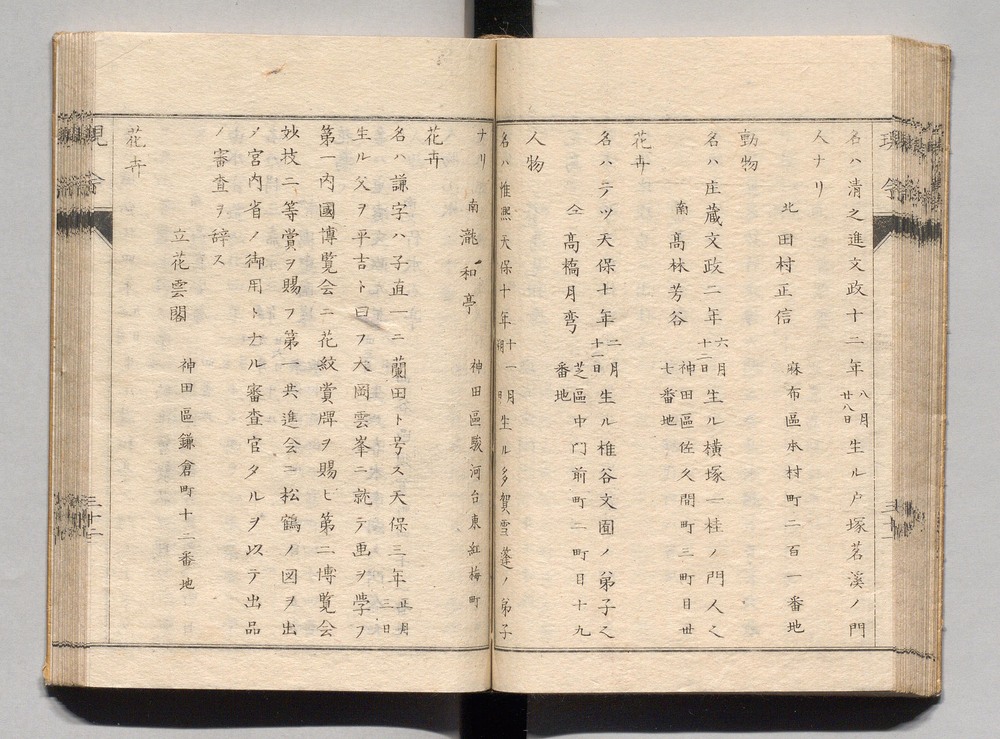 名ハ清之進文政十二年八月廿八日生ル戸塚茗溪ノ門
人ナリ
北 田村正信 麻布區本村町二百一番地
動物
名ハ庄蔵文政二年六月十二日生ル横塚一桂ノ門人之
南 髙林芳谷 神田區佐久間町三町目卅七番地
花卉
名ハテツ天保十年二月十一日生ル椎谷文囿ノ弟子之
仝 髙橋月弯 芝區中门前町二町目十九番地
人物
名ハ惟熙天保十年十一月朔日生ル多賀雪蓬ノ弟子
ナリ
南 瀧和亭 神田區駿河台東紅梅町
花卉
名ハ謙字ハ子直一ニ蘭田ト号ス天保三年正月三日
生ル父ヲ平吉ト曰フ大岡雲峯ニ就テ画ヲ學フ
第一内國博覧会ニ花紋賞牌ヲ賜ヒ第二博覧会
妙技二等賞ヲ賜フ第一共進会ニ松鶴ノ図ヲ出
ノ宮内省ノ御用トナル審査官タルヲ以テ出品
ノ審査ヲ辞ス
立花雲閣 神田區鎌倉町十二番地
花卉